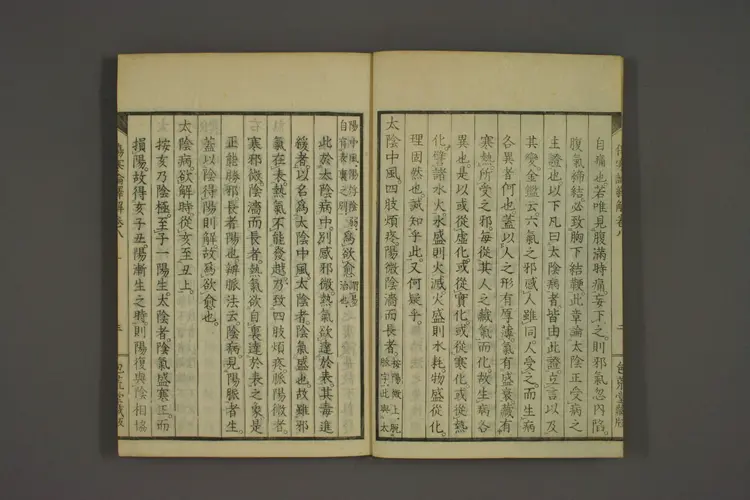 自痛也若唯見腹滿時痛妄下之則邪氣忽內陷
腹氣締結必致胸下結鞕此章論太陰正受病之
主證也以下凡曰太陰病者皆由此證立言以及
其變金鑑云六氣之邪感人雖同人受之而生病
各異者何也蓋以人之形有厚薄氣有盛衰藏有
寒熱所受之邪每從其人之藏氣而化故生病各
異也是以或從虛化或從實化或從寒化或從熱
化譬諸水火水盛則火滅火盛則水耗物盛從化
理固然也誠知乎此又何疑乎
太陰中風四肢煩疼陽微陰濇而長者 按陽微上脫
脈字此與太
陽中風陽浮陰弱
自有表裏之別 爲欲愈 謂易
治也
此於太陰病中別感邪微熱氣欲達於表其毒進
緩者以名爲太陰中風太陰者陰氣盛也故雖邪
氣在表熱氣不能發越乃致四肢煩疼脈陽微者
寒邪微陰濇而長者熱氣欲自裏達於表之象是
正能勝邪長者陽也辨脈法云陰病見陽脈者生
蓋以陰得陽則解故爲欲愈也
太陰病欲解時從亥至丑上
按亥乃陰極至子一陽生太陰者陰氣盛寒正而
損陽故得亥子丑陽漸生之時則陽復與陰相協
傷寒論繹解卷八